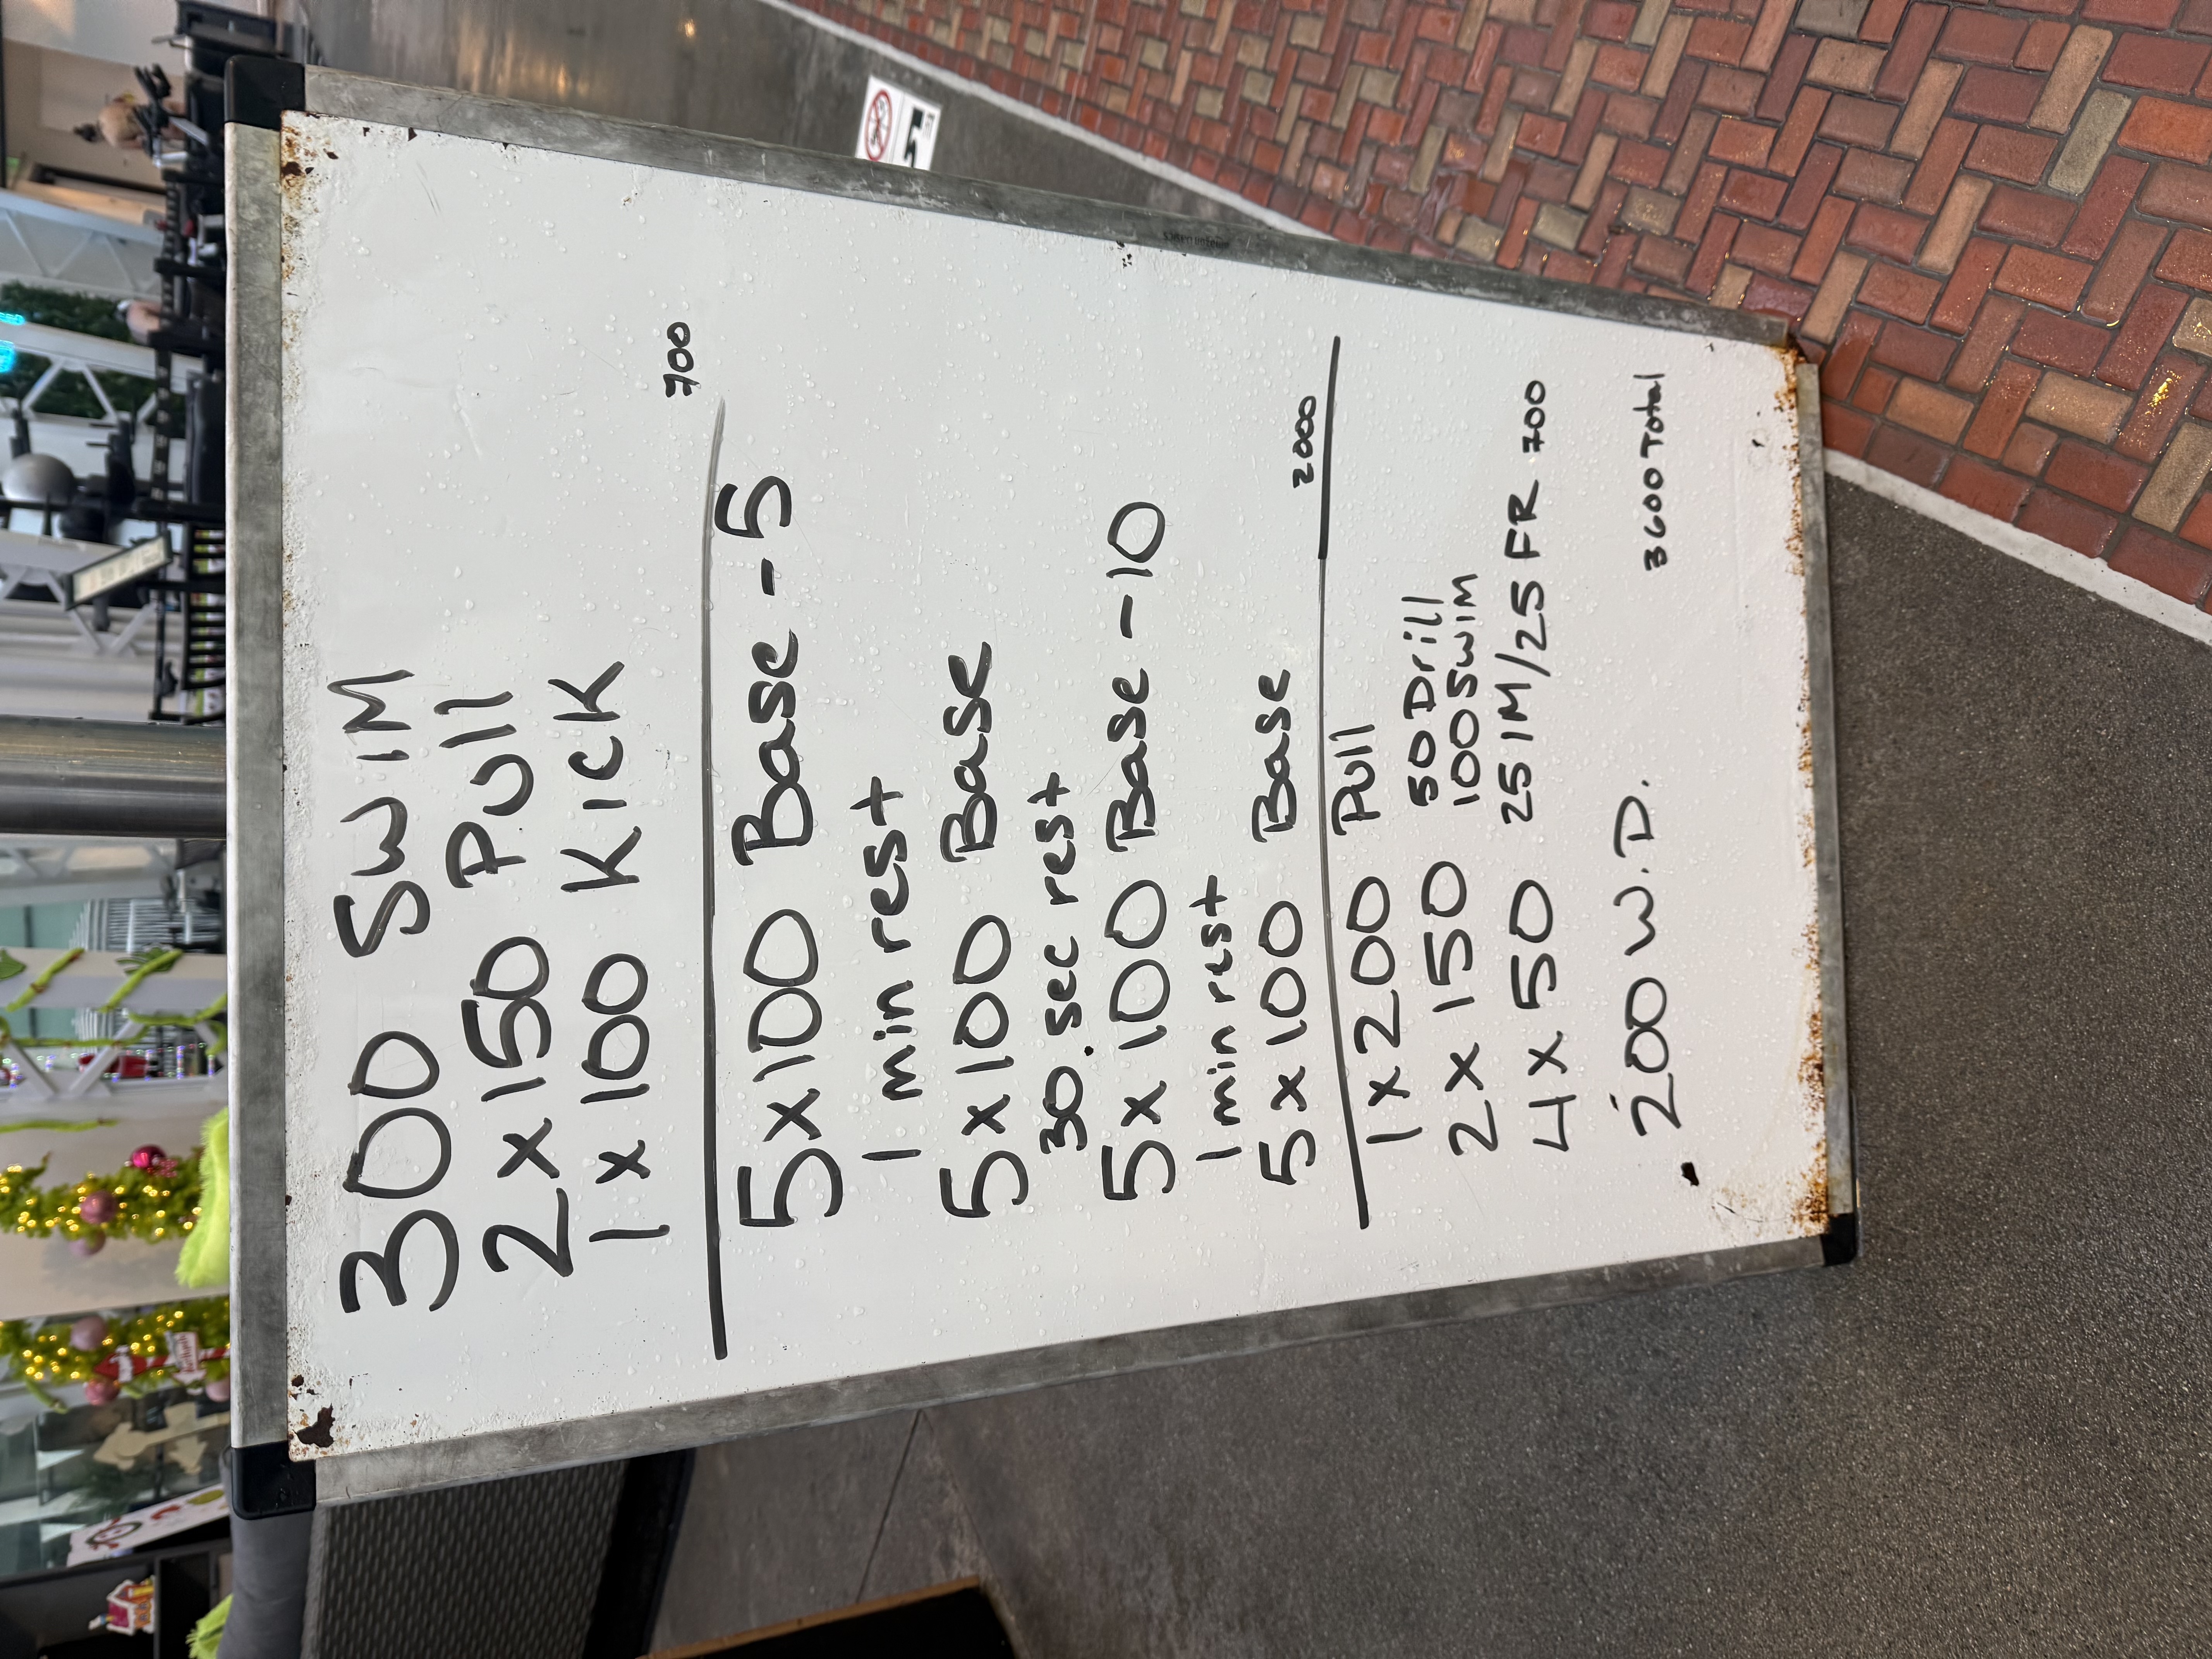 300 SWIM
2 x 150 Pull
1 x 100 KICK
700
5x100 Base -5
1 min rest
5x100 Base
30 sec rest
5x100 Base -10
1 min rest
5x100 Base
2000
1x200 Pull
2x150 50 Drill
100 SWIM
4x50 25 IM/25 FR 700
200 W.D.
3600 Total
5